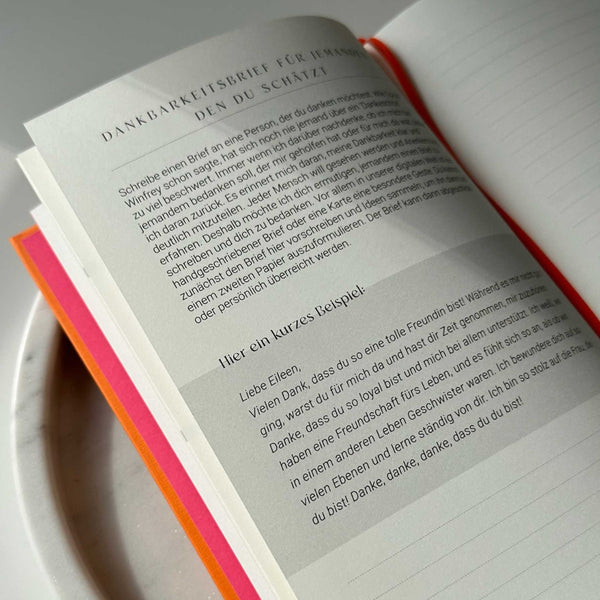 DANKBARKEITSBRIEF FÜR JEMANDEN
DEN DU SCHÄTZT
Schreibe einen Brief an eine Person, der du danken möchtest. Wie
Winfrey schon sagte, hat sich noch nie jemand über ein "Dankeschön"
zu viel beschwert. Immer wenn ich darüber nachdenke, ob ich mich bei
jemandem bedanken soll, der mir geholfen hat oder für mich da war,
ich daran zurück. Es erinnert mich daran, meine Dankbarkeit klar und
deutlich mitzuteilen. Jeder Mensch will gesehen werden und
erfahren. Deshalb möchte ich dich ermutigen, jemandem einen Brief zu
schreiben und dich zu bedanken. Vor allem in unserer digitalen Welt ist ein
handgeschriebener Brief oder eine Karte eine besondere Geste. Du kannst
zunächst den Brief hier vorschreiben und Ideen sammeln, um ihn dann auf
einem zweiten Papier auszuformulieren. Der Brief kann dann abgeschickt
oder persönlich überreicht werden.
Hier ein kurzes Beispiel:
Liebe Eileen,
Vielen Dank, dass du so eine tolle Freundin bist! Während es mir nicht gut
ging, warst du für mich da und hast dir Zeit genommen, mir zuzuhören.
Danke, dass du so loyal bist und mich bei allem unterstützt. Ich weiß, wir
haben eine Freundschaft fürs Leben, und es fühlt sich so an, als ob wir
in einem anderen Leben Geschwister waren. Ich bewundere dich auf so
vielen Ebenen und lerne ständig von dir. Ich bin so stolz auf die Frau, die
du bist! Danke, danke, danke, dass du du bist!